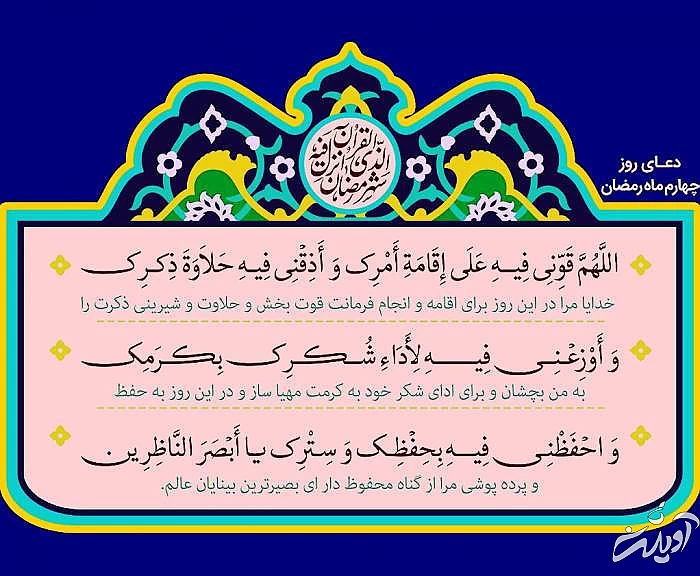 شهر رمضان الذی انزل فیه القرآن
دعـای روز
چهارم ماه رمضان
اللَّهُمَّ قَوِّنِی فِیـهِ عَلَى إِقَامَةِ أَمْرِکَ وَ أَذِقْنِی فِیهِ حَلاَوَةَ ذِکـرِکَ
خدایا مرا در این روز برای اقامه و انجام فرمانت قوت بخش و حلاوت و شیرینی ذکرت را
وَ أَوْزِعْـنِـی فِیـهِ لِأَدَاءِ شُـکْـرِکَ بِـکَـرَمِکَ
به من بچشان و برای ادای شکر خود به کرمت مهیا ساز و در این روز به حفظ
وَ احْفَظْنِی فِیهِ بِحِفْظِکَ وَ سِتْرِکَ یَـا أَبْصَرَ النَّاظِرِین
و پرده پوشی مرا از گناه محفوظ دار ای بصیرترین بینایان عالم.